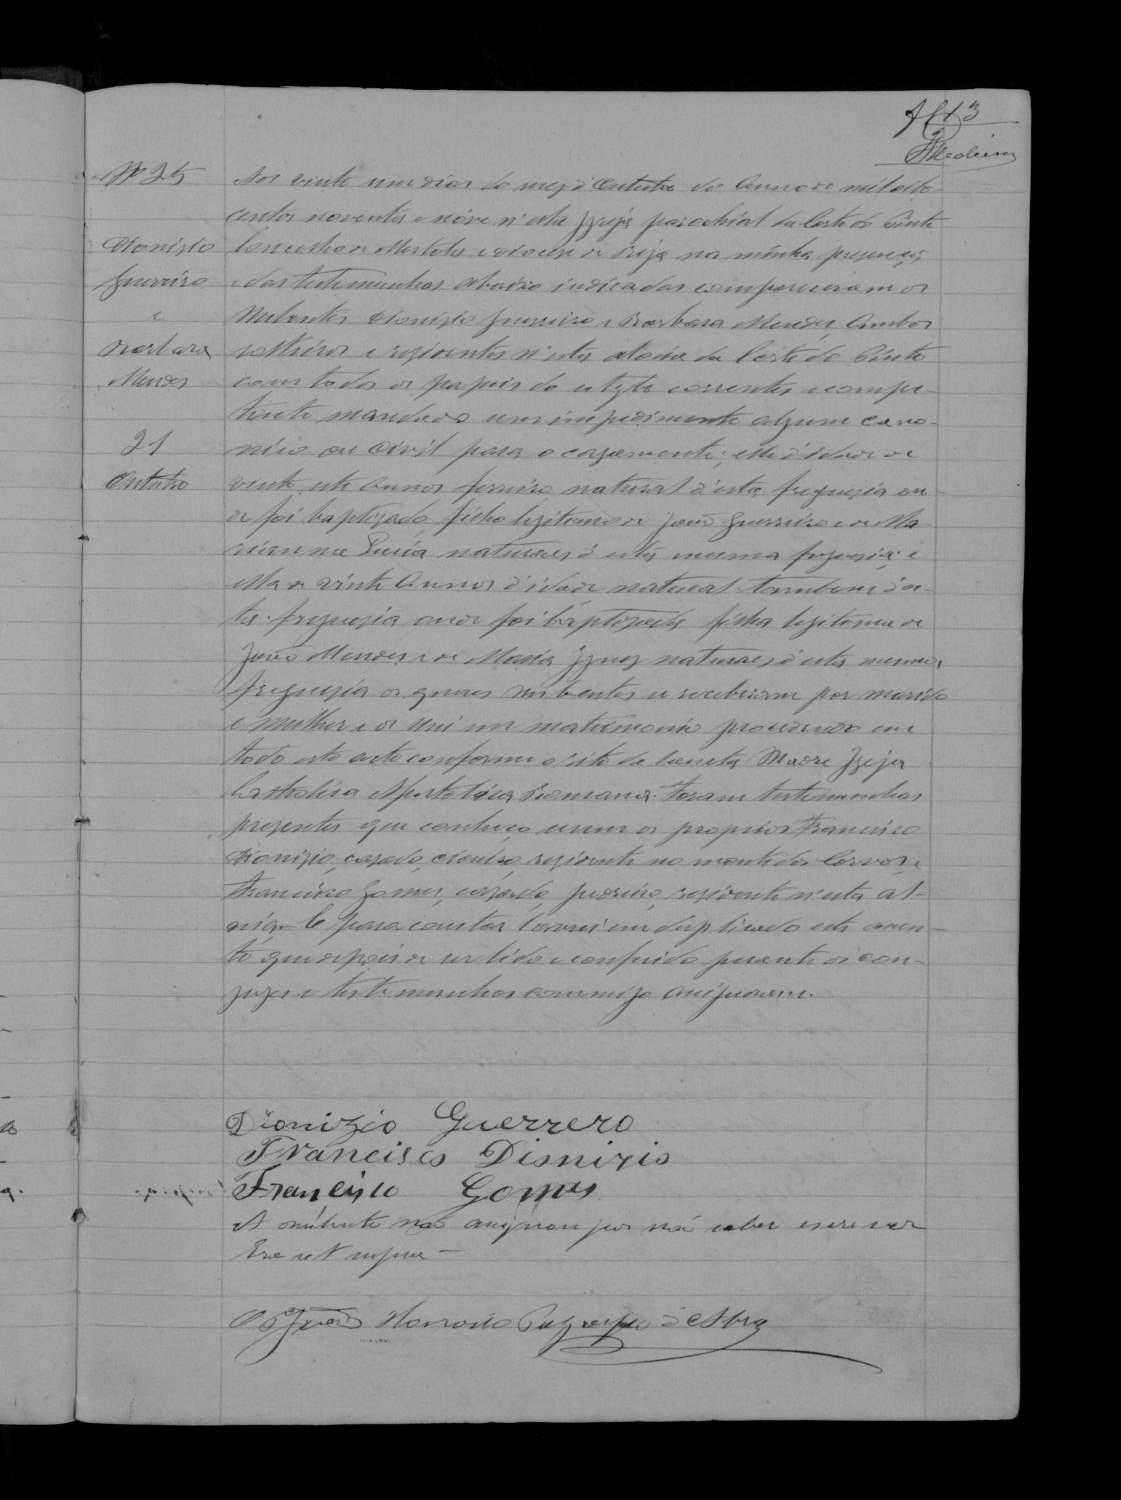 13
Medeiros
Nº 25
Dionizio
Guerreiro
e
Barbara
Mendes
21
Outubro
Aos vinte um dias do mez d'Outubro do Anno de mil oito
centos noventa e nove n'esta Igreja parochial da Corte do Pinto
Concelho de Mertola e diocese de Beja na minha presença
e das testemunhas abaixo indicadas compareceram os
Nubentes Dionizio Guerreiro e Barbara Mendes Ambos
solteiros e residentes n'esta aldeia da Corte do Pinto
com todos os papeis do estylo correntes e compe-
tente mandado sem impedimento algum cano-
nico ou civil para o casamento; elle d'idade de
vinte sete Annos natural d'esta freguezia on-
de foi baptizado, filho legitimo de João Guerreiro e de Ma
rianna Luzia naturaes d'esta mesma freguezia; e
ella de vinte Annos d'idade natural tambem d'es-
ta freguezia onde foi baptizada filha legitima de
João Mendes e de Maria Ignez naturaes d'esta mesma
freguezia os quaes nubentes se receberam por marido
e mulher e os uni em matrimonio procedendo em
todo este acto conforme o rito da Santa Madre Igreja
Catholica Apostolica Romana. Foram testemunhas
presentes que conheço serem os proprios Francisco
Dionizio, casado, residente no monte dos Corvos, e
Francisco Gomes, casado, residente n'esta al-
deia. E para constar lavrei em duplicado este assen-
to que depois de ser lido e conferido perante os con-
juges e testemunhas commigo assignaram.
Dionizio Guerrero
Francisco Dionizio
Francisco Gomes
A nubente não assignou por não saber escrever
Era ut supra —
O João Honorio d'